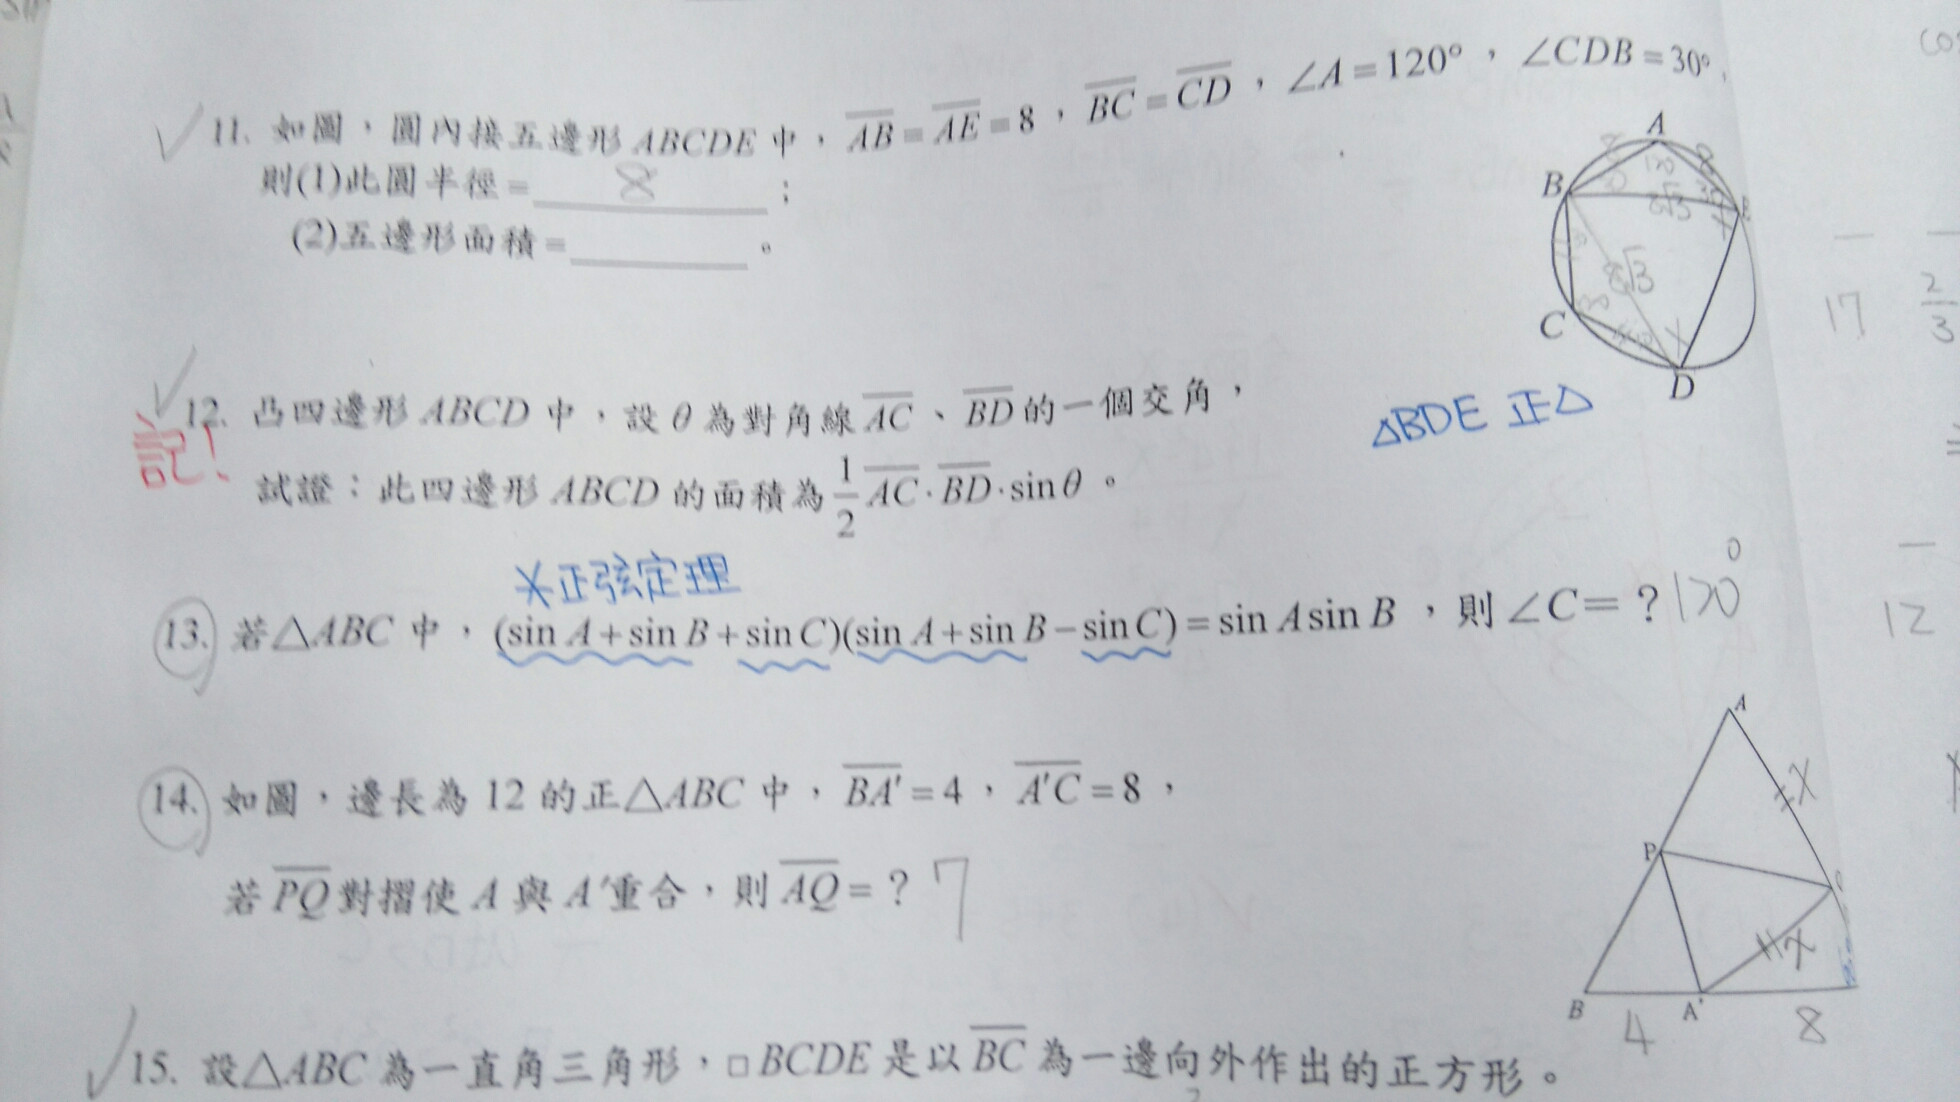 11. 如圖，圓內接五邊形ABCDE中，AB=AE=8，BC=CD，∠A=120°，∠CDB=30°，
則(1)此圓半徑= 8 ；
(2)五邊形面積= 。
A
B
C
D
8√3
8√3
17
2
3
△BDE 正△
12. 凸四邊形ABCD中，設θ為對角線AC、BD的一個交角，
記!
試證：此四邊形ABCD的面積為1/2 AC·BD·sinθ。
*正弦定理
13. 若△ABC中，(sin A+sin B+sin C)(sin A+sin B−sin C)=sin A sin B，則∠C=？120°
12
14. 如圖，邊長為12的正△ABC中，BA'=4，A'C=8，
若PQ對摺使A與A'重合，則AQ=？7
A
x
P
x
B
A'
4
8
15. 設△ABC為一直角三角形，□BCDE是以BC為一邊向外作出的正方形。